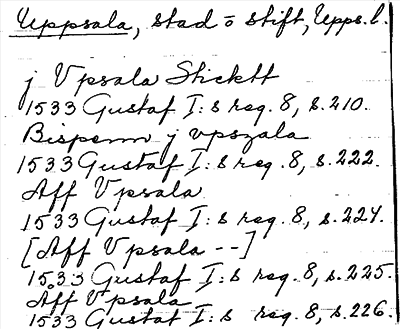 Uppsala, stad o stift, Upps. l.
j Vpsala Sticktt
1533 Gustaf I:s reg. 8, s. 210.
Bispenn j vpszala
1533 Gustaf I:s reg. 8, s. 222.
Aff Vpsala
1533 Gustaf I:s reg. 8, s. 224.
[Aff Vpsala --]
1533 Gustaf I:s reg. 8, s. 225.
Aff Vpsala
1533 Gustaf I:s reg. 8, s. 226.